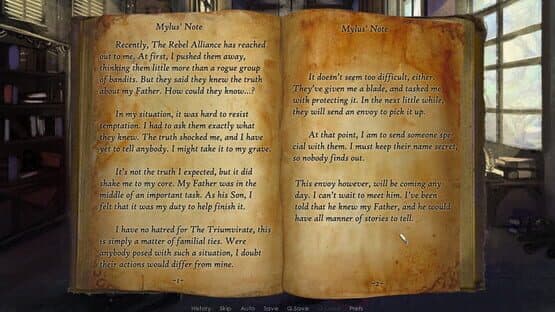 Mylus' Note
Recently, The Rebel Alliance has reached
out to me. At first, I pushed them away,
thinking them little more than a rogue group
of bandits. But they said they knew the truth
about my Father. How could they know...?
In my situation, it was hard to resist
temptation. I had to ask them exactly what
they knew. The truth shocked me, and I have
yet to tell anybody. I might take it to my grave.
It's not the truth I expected, but it did
shake me to my core. My Father was in the
middle of an important task. As his Son, I
felt that it was my duty to help finish it.
I have no hatred for The Triumvirate, this
is simply a matter of familial ties. Were
anybody posed with such a situation, I doubt
their actions would differ from mine.
~1~
Mylus' Note
It doesn't seem too difficult, either.
They've given me a blade, and tasked me
with protecting it. In the next little while,
they will send an envoy to pick it up.
At that point, I am to send someone spe-
cial with them. I must keep their name secret,
so nobody finds out.
This envoy however, will be coming any
day. I can't wait to meet him. I've been
told that he knew my Father, and he would
have all manner of stories to tell.
~2~
History Skip Auto Save Q.Save Prefs